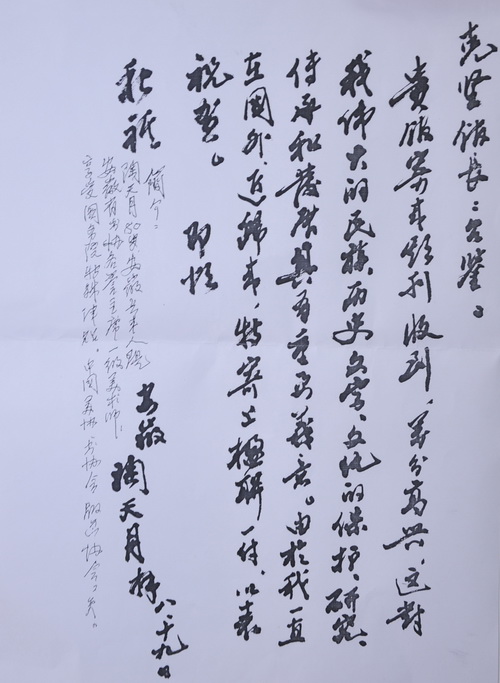 志坚馆长：台鉴。
贵馆寄来馆刊收到，万分高兴，这对
我伟大的民族历史文字、文化的保护、研究、
传承和发展具有重要义意。由於我一直
在国外，近归来，特寄上楹联一付，以表
祝贺。
即颂
秋祺
安徽 陶天月 拜 八.十九日
简介：
陶天月 80岁 安徽 人
安徽省书协名誉主席 一级美术师，
享受国务院特殊津贴。中国美协 书协会 会员。